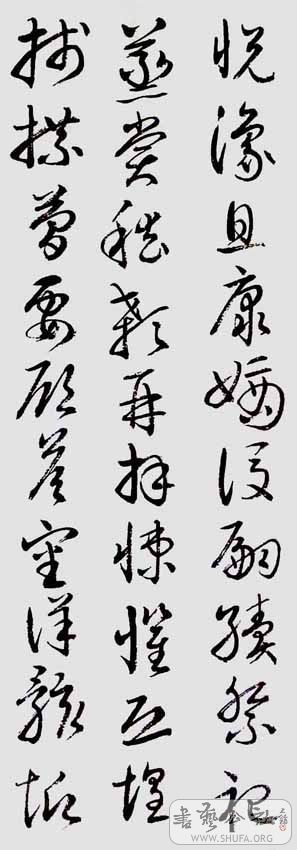 悦豫且康嫡後嗣續祭祀
蒸嘗稽顙再拜悚懼恐惶
牋牒簡要顧答審詳骸垢
WWW.SHUFA.ORG